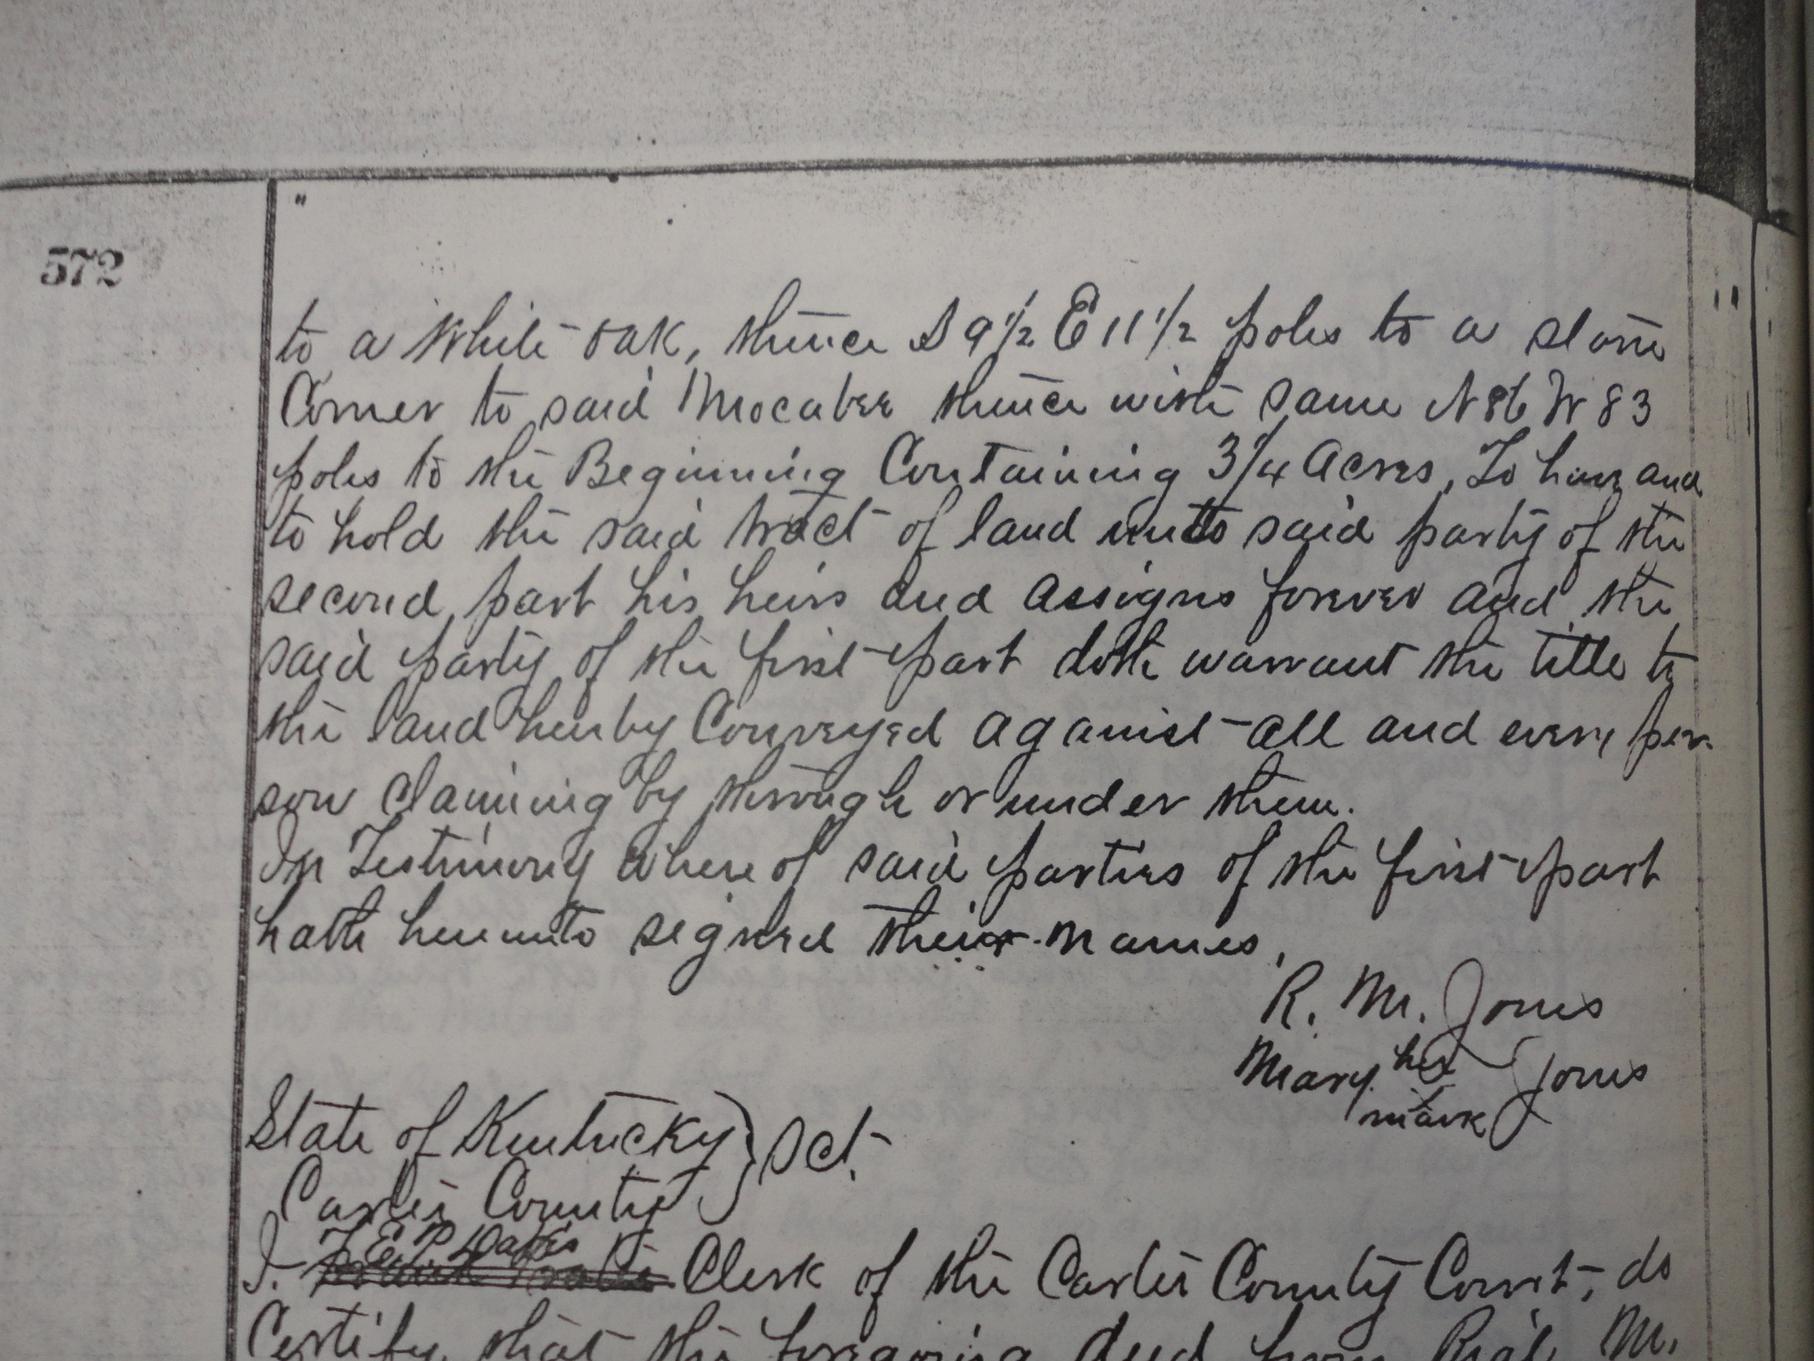 572
to a White oak, thence S 9½ E 11½ poles to a stone
Corner to said Mocabee thence with same N 86 W 83
poles to the Beginning Containing 3/4 Acres, To have and
to hold the said tract of land unto said party of the
second part his heirs and assigns forever and the
said party of the first part doth warrant the title to
the land herby Conveyed against all and every per
son claiming by through or under them.
In Testimony where of said parties of the first part
hath hereunto signed their names,
R. M. Jones
Mary her Jones
mark
State of Kentucky } Sct.
Carter County
Davis
I. Clerk of the Carter County Court, do
Certify that the foregoing deed from M.